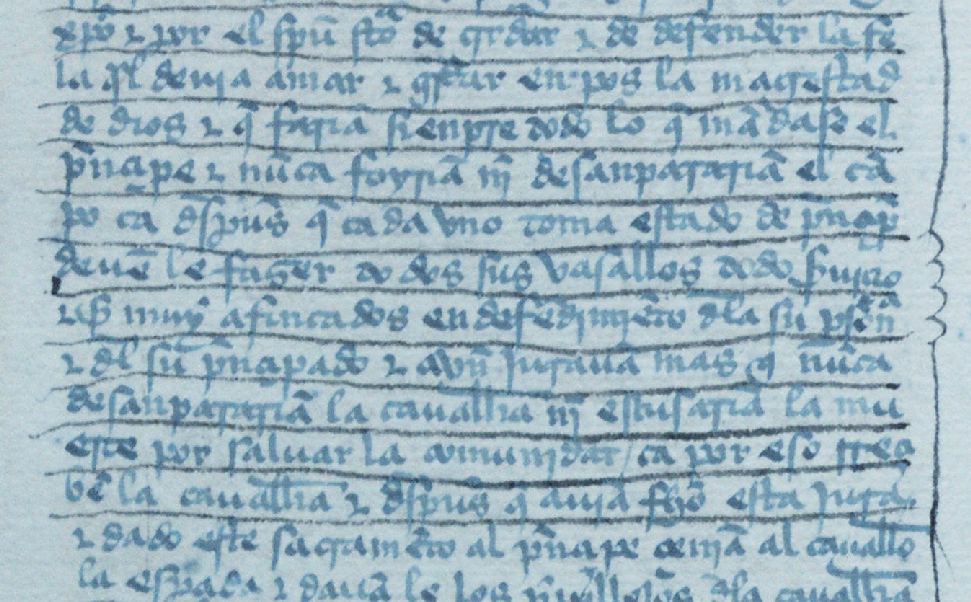 xp̄o ⁊ por el spū stō de gr̄dar ⁊ de defender la fe
la q̄l deuia amar ⁊ gr̄dar enpos la magestad
de dios ⁊ q̄ faria sienpre todo lo q̄ mādase el
pn̄cipe ⁊ nūca foyriā nī desanparariā el cā
po ca dsp̄ues q̄ cada vno toma estado de pn̄cipe
deuē le fazer todos sus vasallos todo s̄uicio
⁊ muy afincados en defēdimiēto dla su
⁊ dl su pn̄cipado ⁊ avn̄ jurauā mas q̄ nūca
desanpararia la cauallīa nī escusaria la mu
erte por saluar la comunidat / ca por eso rreç
bē la cauallīa ⁊ dsp̄ues q̄ auia fh̄o esta jura
⁊ dado este sacramēto al pn̄cipe cenīa al cauallō
la espada ⁊ dauā le los dla cauallīa